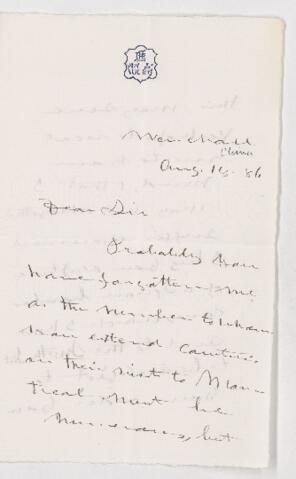 Aug. 16. 86
Dear Sir
Probably you
have forgotten me
as the number to whom
you extend courtesies
on their visit to Mon-
treal must be
numerous, but